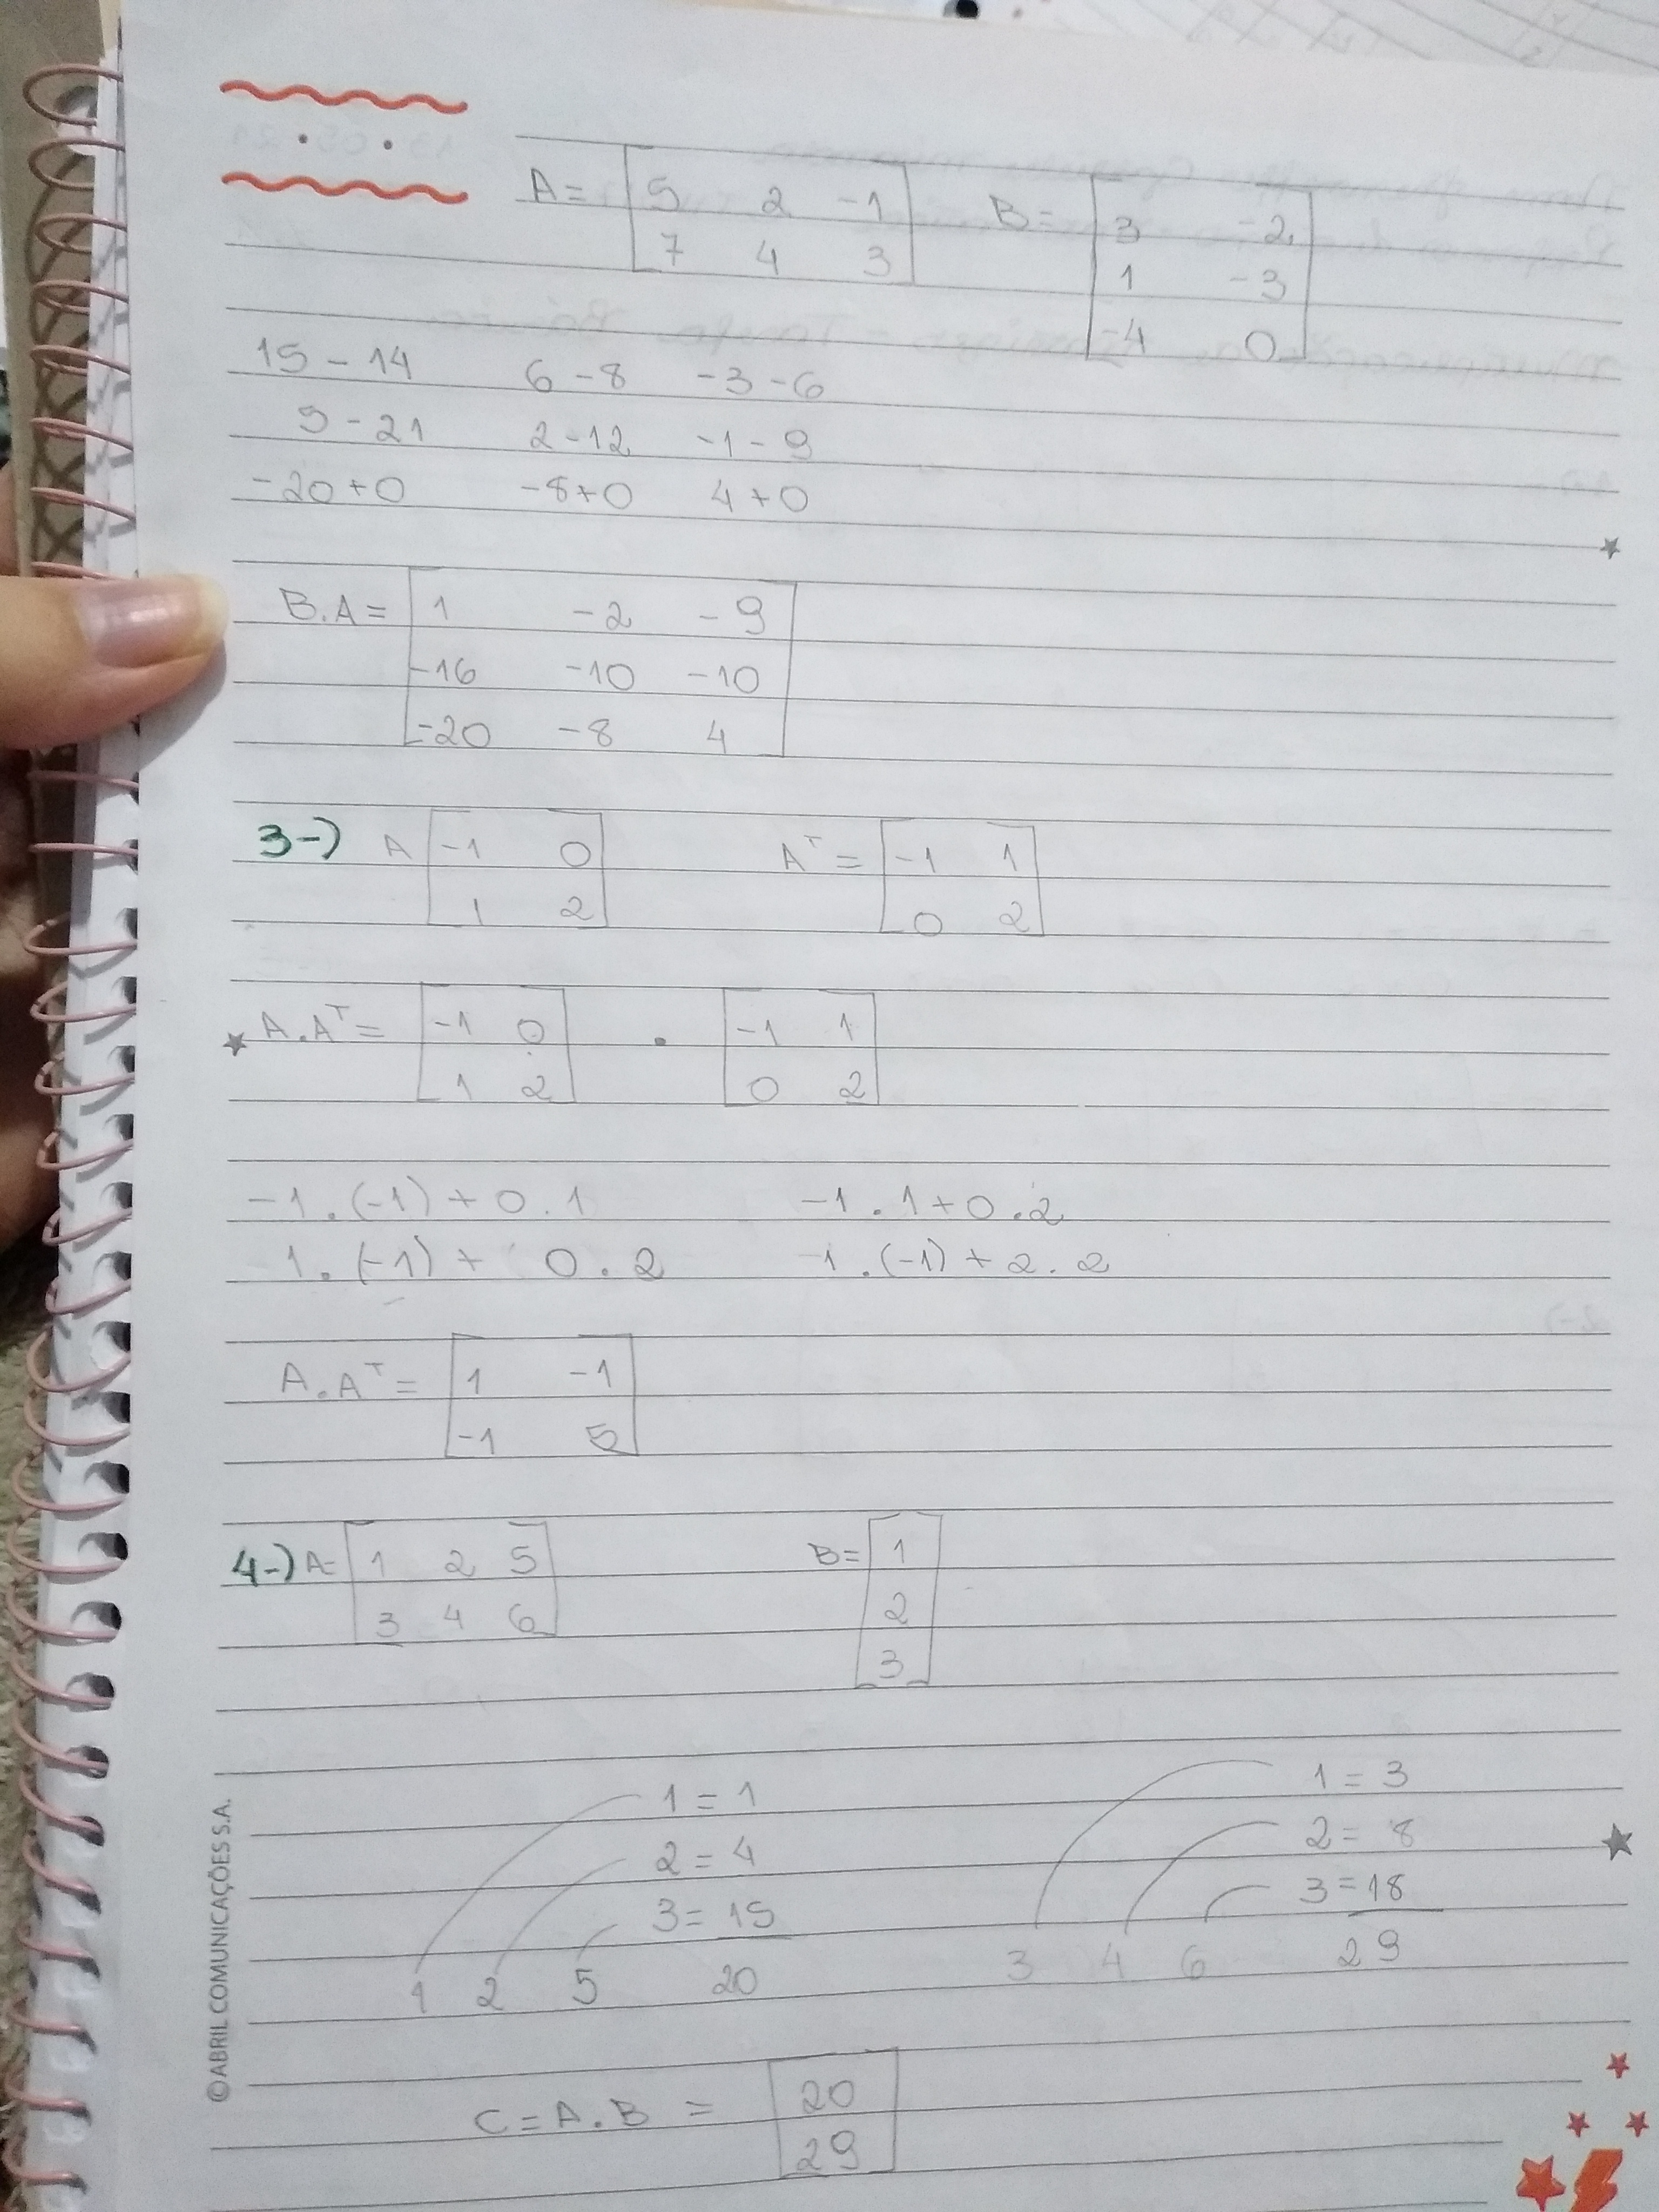 A = 5 2 -1 B = 3 -2
7 4 3 1 -3
-4 0
15 - 14 6 - 8 -3 - 6
5 - 21 2 - 12 -1 - 9
-20 + 0 -8 + 0 4 + 0
B.A = 1 -2 -9
-16 -10 -10
-20 -8 4
3-) A -1 0 Aᵀ = -1 1
1 2 0 2
A.Aᵀ = -1 0 . -1 1
1 2 0 2
-1.(-1) + 0.1 -1.1 + 0.2
1.(-1) + 0.2 1.(-1) + 2.2
A.Aᵀ = 1 -1
-1 5
4-) A= 1 2 5 B = 1
3 4 6 2
3
1 = 1 1 = 3
2 = 4 2 = 8
3 = 15 3 = 18
1 2 5 20 3 4 6 29
C = A.B = 20
29
©ABRIL COMUNICAÇÕES S.A.